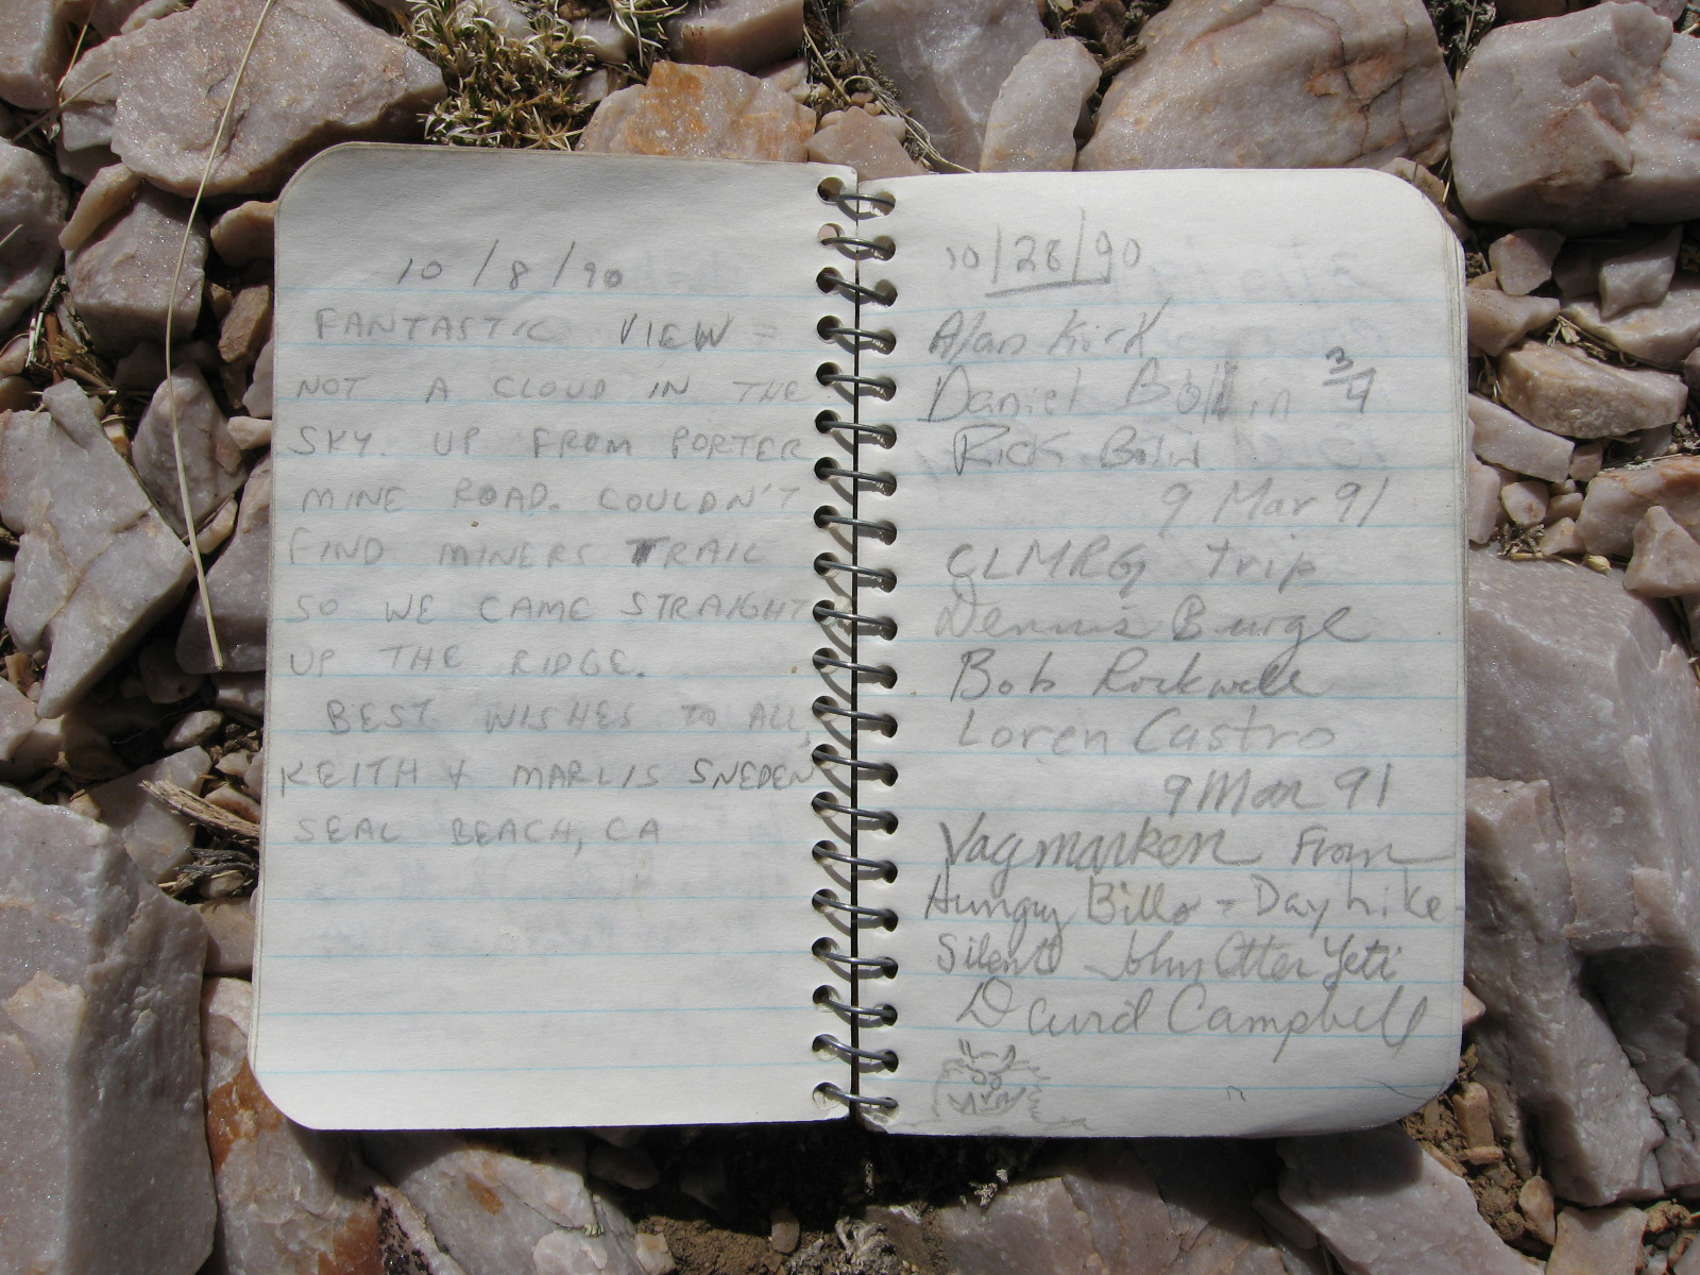 10/8/90
FANTASTIC VIEW -
NOT A CLOUD IN THE
SKY. UP FROM PORTER
MINE ROAD. COULDN'T
FIND MINERS TRAIL
SO WE CAME STRAIGHT
UP THE RIDGE.
BEST WISHES TO ALL,
KEITH + MARLIS SNEDEN
SEAL BEACH, CA
10/28/90
Alan Kirk
Daniel Bolin 3/4
Rick Bolin
9 Mar 91
CLMRG trip
Dennis Burge
Bob Rockwell
Loren Castro
9 Mar 91
Vagmarken From
Hungry Bills - Day hike
Silent John Otter Yeti
David Campbell